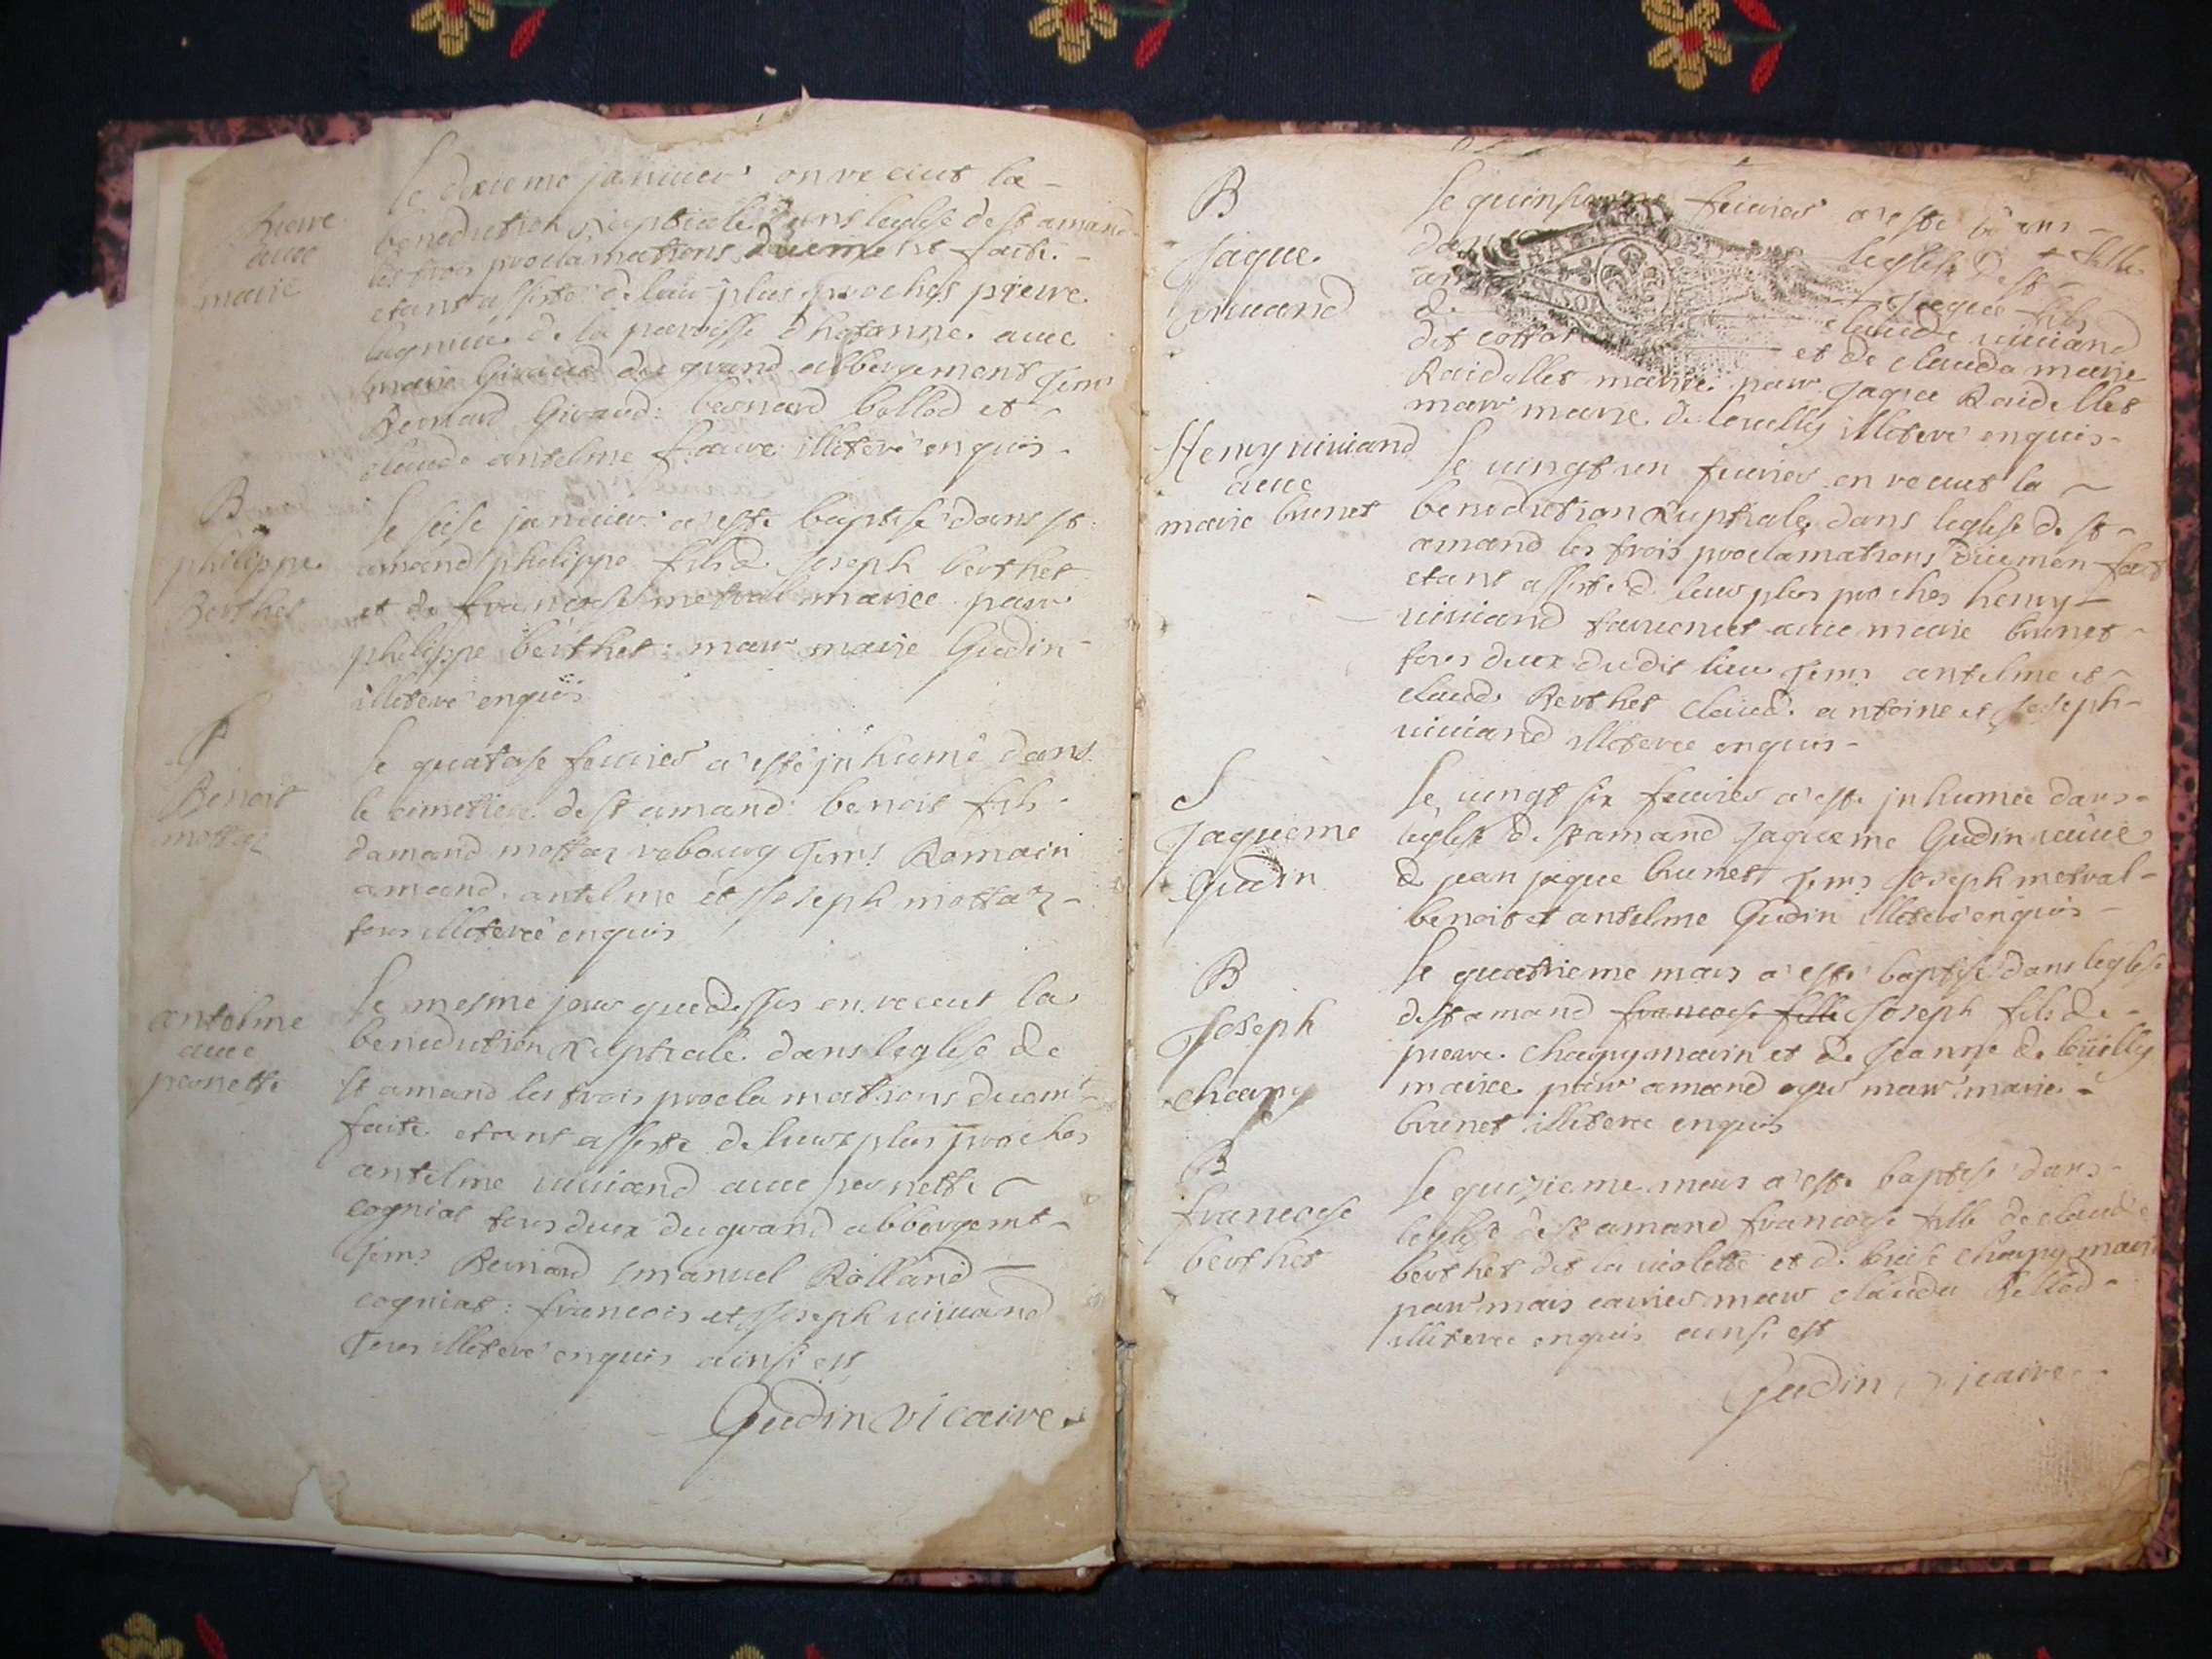 Pierre
avec
marie
Le dixieme janvier on receut la
benediction nuptiale dans leglise de st amand
les trois proclamations duement faite
etant assisté de leur plus proches pierre
de la paroisse avec
marie Giraud du grand abbergement tems
Bernard Giraud: bernard bollod et
claude antelme faure illiteré enquis
B
philippe
Berthet
Le seise janvier a esté baptisé dans st
amand philippe fils de Joseph berthet
et de francoise metral mariee parr
philippe berthet: marr marie Gudin
illiteré enquis
S
Benoit
mottaz
le quatose fevrier a esté jnhumé dans
le cimetiere de st amand benoit fils
damand mottaz tems Romain
amand, antelme et Joseph mottaz
tous illiteré enquis
antelme
avec
pernette
Le mesme jour que dessus on receut la
benediction Nuptiale dans leglise de
st amand les trois proclamations duemt
faite etant assisté de leurs plus proches
antelme viviand avec pernette
cogniat tous deux du grand abbergemt
tems Bernard emanuel Rolland
cogniat: francois et Joseph viviand
Tous illiteré enquis ainsi est
Gudin vicaire
B
Jaque
viviand
Le fevrier a esté
dans leglise de st
Jaque fils
de claude viviand
dit et de clauda marie
Raidellet mariée parr Jaque Raidellet
marr marie de leuilly illiteré enquis
Henry viviand
avec
marie brunet
Le vingt un fevrier on receut la
benediction Nuptiale dans leglise de st
amand les trois proclamations duemen fait
etant assisté de leur plus proches henry
viviand avec marie brunet
tous deux dudit lieu tems antelme et
claude Berthet claude antoine et Joseph
viviand illiteree enquis
S
Jaqueme
Gudin
Le vingt six fevrier a esté jnhumée dans
leglise de st amand Jaqueme Gudin veuve
de jean jaque brunet, tems Joseph metral
benoit et antelme Gudin illiteré enquis
B
Joseph
chapuy
Le quatrieme mars a esté baptisé dans leglise
de st amand francoise fille Joseph fils de
pierre chapuy marin et de Jeanne de leüilly
mairee parr amand marr marie
brunet illiteree enquis
B
francoise
berthet
Le quizieme mars a esté baptisé dans
leglise de st amand francoise fille de claude
berthet dit la violette et de chapuy
parr marr clauda Bollod
illiteree enquis ainsi est
Gudin vicaire